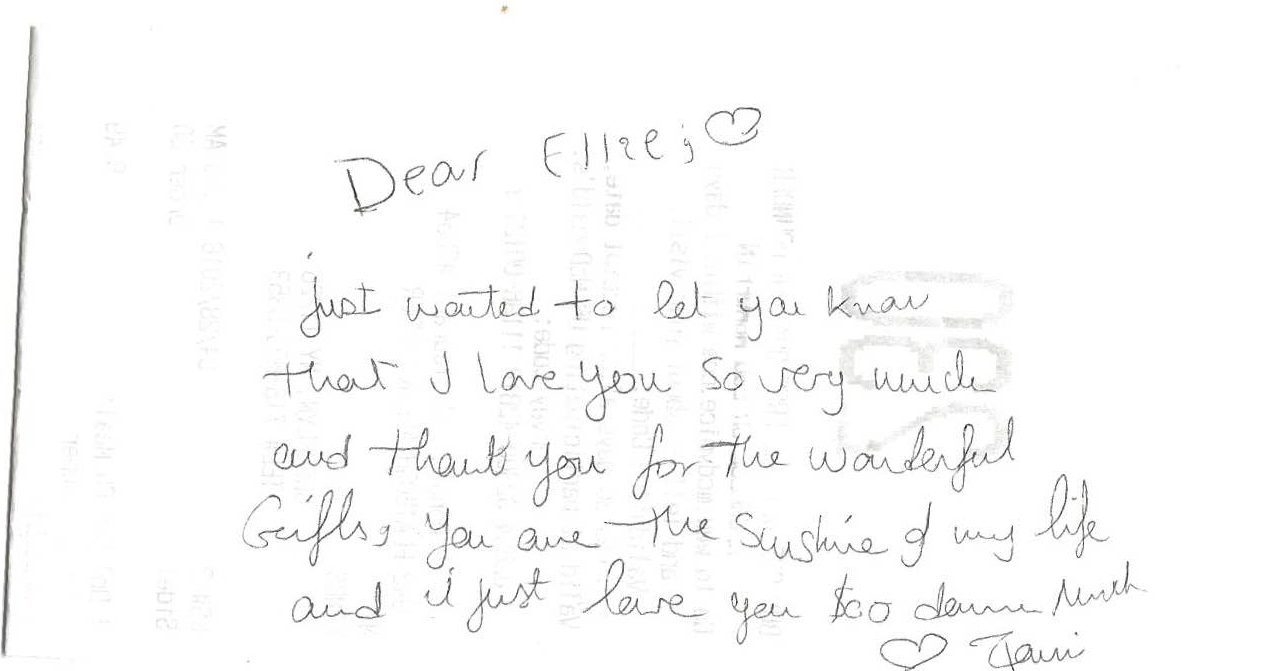 Dear Ellie; ♡
just wanted to let you know
that I love you so very much
and thank you for the wonderful
Gifts, You are the Sunshine of my life
and i just love you too damn Much
♡